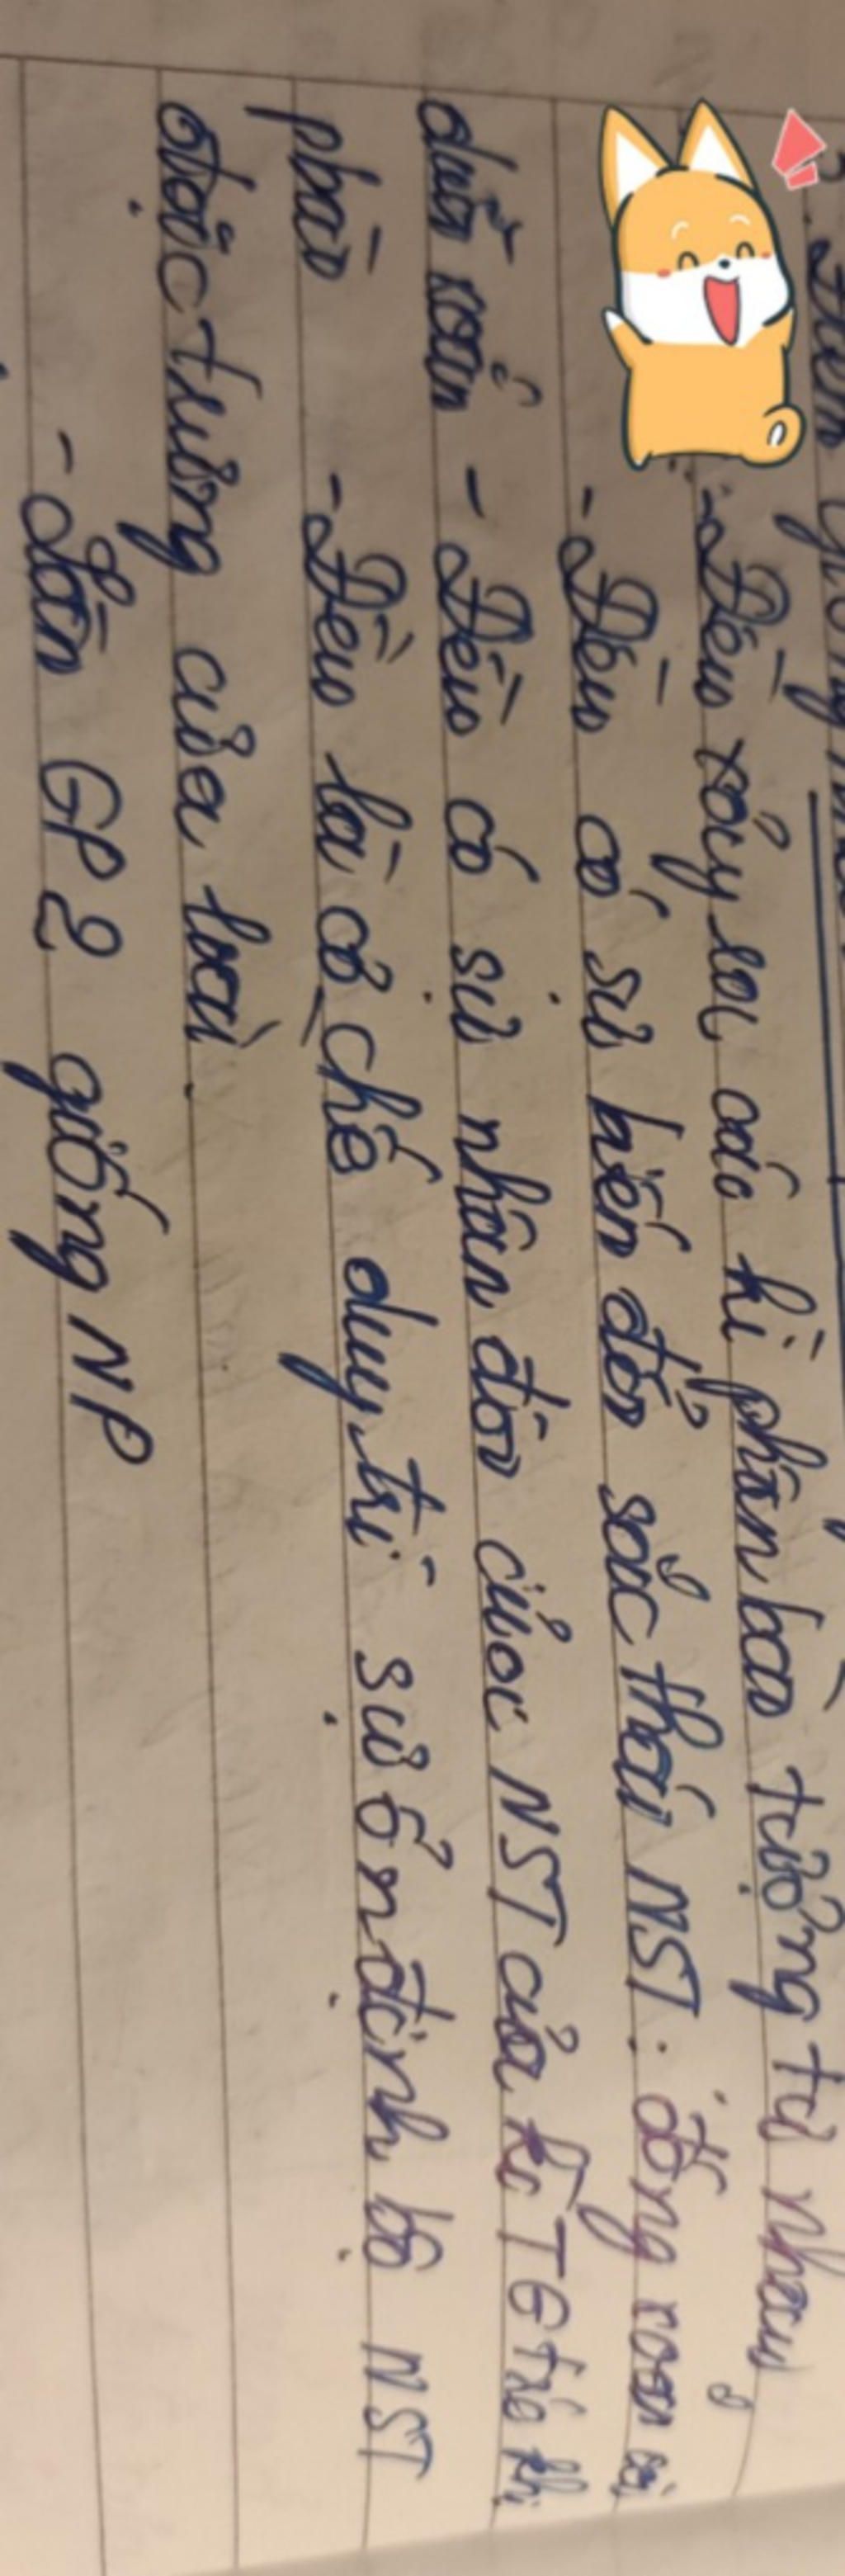 điểm giống nhau
- Đều xảy ra các kì phân bào tương tự nhau
- Đều có sự biến đổi sắc thái NST: đóng xoắn và
duỗi xoắn - Đều có sự nhân đôi của NST của kì TG trc khi
phân - Đều là cơ chế duy trì sự ổn định bộ NST
đặc trưng của loài.
- Lần GP 2 giống NP